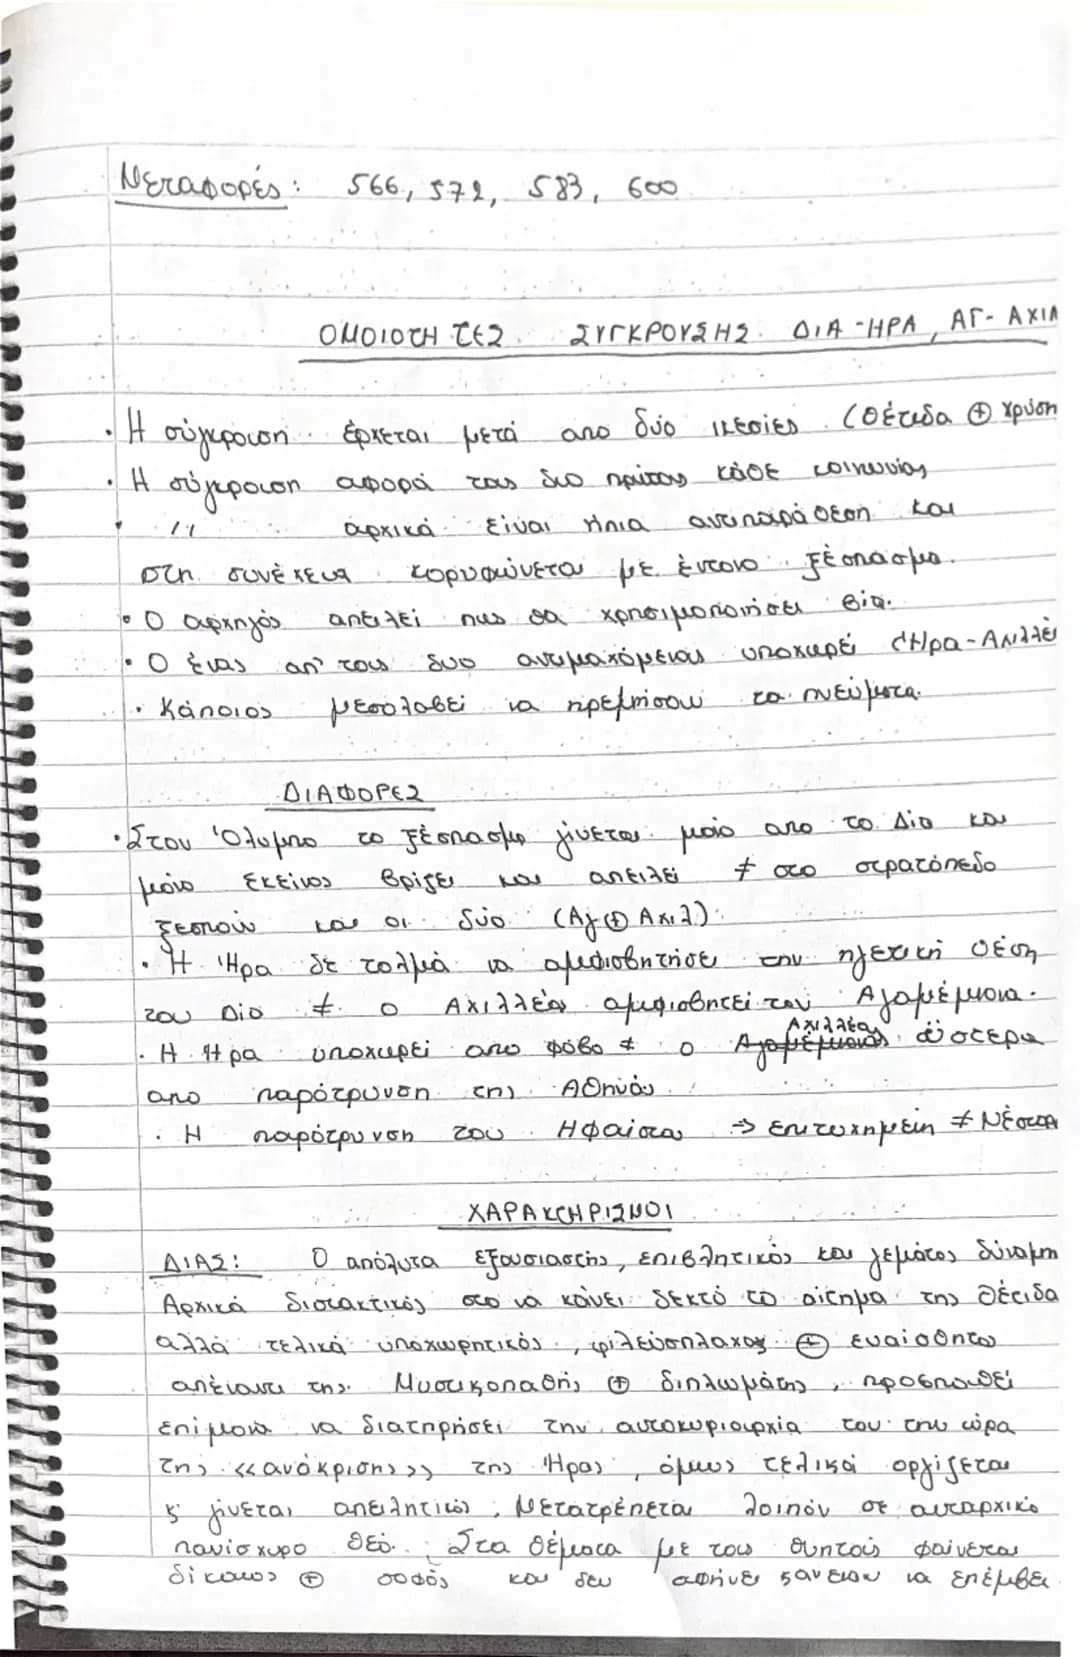 Μεταφορές: 566, 572, 583, 600
ΟΜΟΙΟΤΗΤΕΣ ΣΥΓΚΡΟΥΣΗΣ ΔΙΑ-ΗΡΑ, ΑΓ-ΑΧΙΛ
• Η σύγκρουση έρχεται μετά απο δύο ικεσίες (Θέτιδα ⊕ Χρύση
• Η σύγκρουση αφορά τους δυο πρώτους κάθε κοινωνίας
• '' αρχικά είναι ήπια αντιπαράθεση και
στη συνέχεια κορυφώνεται με έντονο ξέσπασμα.
• Ο αρχηγός απειλεί πως θα χρησιμοποιήσει βία.
• Ο ένας απ' τους δυο αντιμαχόμενους υποχωρεί (Ήρα-Αχιλλέ
• Κάποιος μεσολαβεί να ηρεμήσουν τα πνεύματα.
ΔΙΑΦΟΡΕΣ
• Στον Όλυμπο το ξέσπασμα γίνεται μόνο απο το Δία και
μόνο εκείνος βρίζει και απειλεί ≠ στο στρατόπεδο
ξεσπούν και οι δύο (Αγ ⊕ Αχιλ).
• Η Ήρα δε τολμά να αμφισβητήσει την ηγετική θέση
του Δία ≠ ο Αχιλλέας αμφισβητεί του Αγαμέμνονα.
• Η Ήρα υποχωρεί απο φόβο ≠ ο Αγαμέμνονας Αχιλλέας ύστερα
απο παρότρυνση της Αθηνάς.
• Η παρότρυνση του Ηφαίστου ⇒ επιτυχημένη ≠ Νέστορ
ΧΑΡΑΚΤΗΡΙΣΜΟΙ
ΔΙΑΣ: Ο απόλυτα εξουσιαστής, επιβλητικός και γεμάτος δύναμη
Αρχικά διστακτικός στο να κάνει δεκτό το αίτημα της Θέτιδα
αλλά τελικά υποχωρητικός, φιλεύσπλαχος ⊕ ευαίσθητο
απέναντι της. Μυστικοπαθής ⊕ διπλωμάτης, προσπαθεί
επίμονα να διατηρήσει την αυτοκυριαρχία του την ώρα
της «ανάκρισης» της Ήρας, όμως τελικά οργίζεται
κ' γίνεται απειλητικός. Μετατρέπεται λοιπόν σε αυταρχικό
πανίσχυρο θεό. Στα θέματα με τους θνητούς φαίνεται
δίκαιος ⊕ σοφός και δεν αφήνει κανέναν να επέμβει